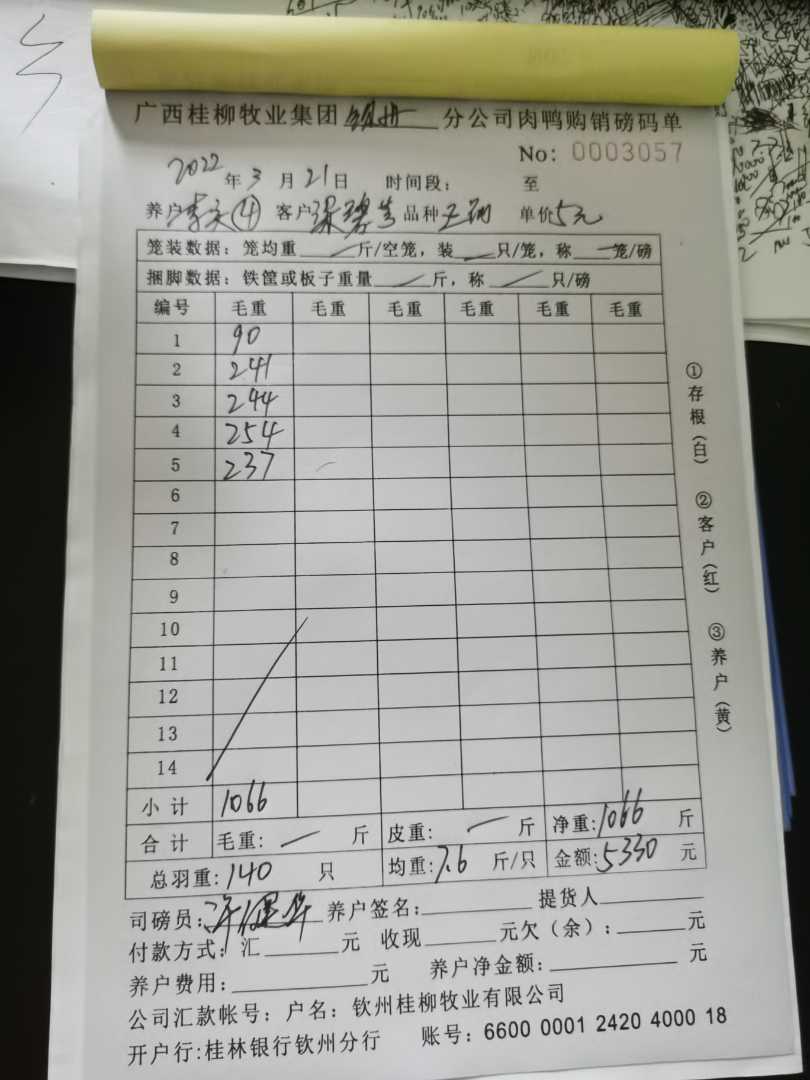 广西桂柳牧业集团 钦州 分公司肉鸭购销磅码单
No: 0003057
2022 年 3 月 21 日 时间段: 至
养户 李 ④ 客户 梁碧 品种 单价 5元
笼装数据: 笼均重 斤/空笼, 装 只/笼, 称 笼/磅
捆脚数据: 铁筐或板子重量 斤, 称 只/磅
编号 毛重 毛重 毛重 毛重 毛重 毛重
1 90
2 241
3 244
4 254
5 237
6
7
8
9
10
11
12
13
14
小计 1066
合计 毛重: 斤 皮重: 斤 净重: 1066 斤
总羽重: 140 只 均重: 7.6 斤/只 金额: 5330 元
司磅员: 许 华 养户签名: 提货人
付款方式: 汇 元 收现 元欠(余): 元
养户费用: 元 养户净金额: 元
公司汇款帐号: 户名: 钦州桂柳牧业有限公司
开户行:桂林银行钦州分行 账号: 6600 0001 2420 4000 18
①存根(白) ②客户(红) ③养户(黄)